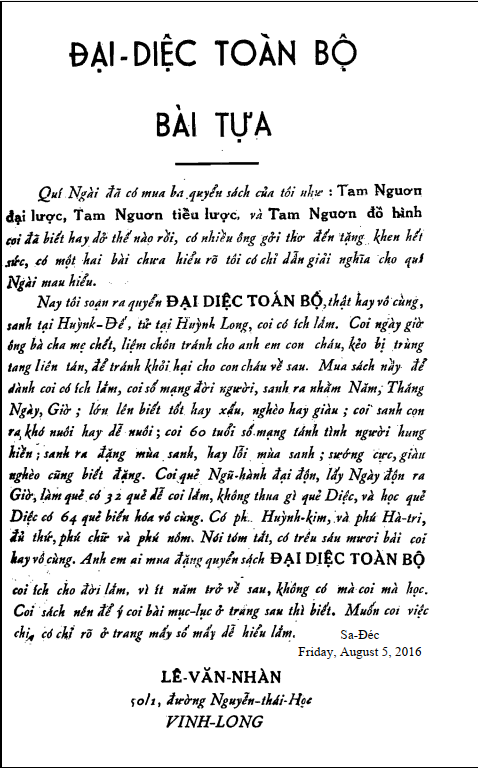 ĐẠI-DIỆC TOÀN BỘ
BÀI TỰA
Quí Ngài đã có mua ba quyển sách của tôi như : Tam Nguơn
đại lược, Tam Nguơn tiểu lược, và Tam Nguơn đồ hình
coi đã biết hay dở thế nào rồi, có nhiều ông gởi thơ đến tặng khen hết
sức, có một hai bài chưa hiểu rõ tôi có chỉ dẫn giải nghĩa cho quí
Ngài mau hiểu.
Nay tôi soạn ra quyển ĐẠI DIỆC TOÁN BỘ, thật hay vô cùng,
sanh tại Huỳnh-Đế, tử tại Huỳnh Long, coi có ích lắm. Coi ngày giờ
ông bà cha mẹ chết, liệm chôn tránh cho anh em con cháu, kẻo bị trùng
tang liên tán, để tránh khỏi hại cho con cháu về sau. Mua sách nầy để
dành coi có ích lắm, coi số mạng đời người, sanh ra nhằm Năm, Tháng
Ngày, Giờ ; lớn lên biết tốt hay xấu, nghèo hay giàu ; coi sanh con
ra, khó nuôi hay dễ nuôi ; coi 60 tuổi số mạng tánh tình người hung
hiền ; sanh ra đặng mùa sanh, hay lỗi mùa sanh ; sướng cực, giàu
nghèo cũng biết đặng. Coi quẻ Ngũ-hành đại độn, lấy Ngày độn ra
Giờ, làm quẻ có 32 quẻ dễ coi lắm, không thua gì quẻ Diệc, và học quẻ
Diệc có 64 quẻ biến hóa vô cùng. Có ph.. Huỳnh-kim, và phú Hà-tri,
đủ thứ, phú chữ và phú nôm. Nói tóm tắt, có trêu sáu mươi bài coi
hay vô cùng. Anh em ai mua đặng quyển sách ĐẠI DIỆC TOÀN BỘ
coi ích cho đời lắm, vì ít năm trở về sau, không có mà coi mà học.
Coi sách nên để ý coi bài mục-lục ở trang sau thì biết. Muốn coi việc
chi, có chỉ rõ ở trang mấy số mấy dễ hiểu lắm.
Sa-Đéc
Friday, August 5, 2016
LÊ-VĂN-NHÀN
50/1, đường Nguyễn-thái-Học
VINH-LONG